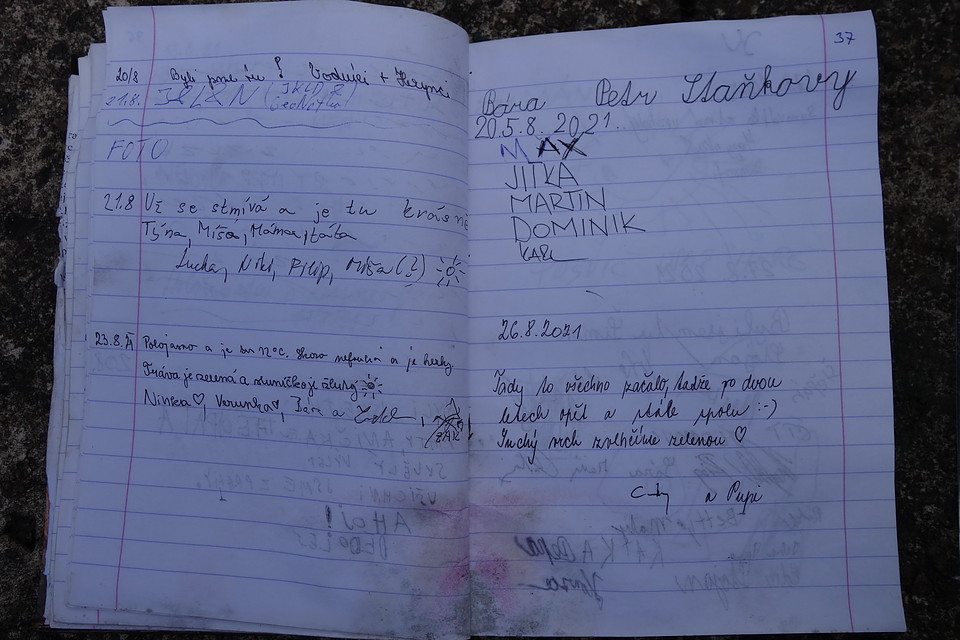 20/8 Byli jsme tu! Vodníci +
21.8.
FOTO
21.8 Už se stmívá a je tu krásně
Týna, Míša, Máma, táta
Lucka, Niki, Filip, Míša (?)
23.8.21 Polojasno a je 12°C. Skoro nefouká a je hezky.
Tráva je zelená a sluníčko je žlutý
Ninska♡, Verunka♥, Bára a
37
Bára Petr Staňkovy
20 5.8. 2021.
MAX
JITKA
MARTIN
DOMINIK
KAREL
26.8.2021
Tady to všechno začalo, takže po dvou
letech opět a stále spolu :-)
Suchý vrch zvolíme zelenou ♡
a Pupi